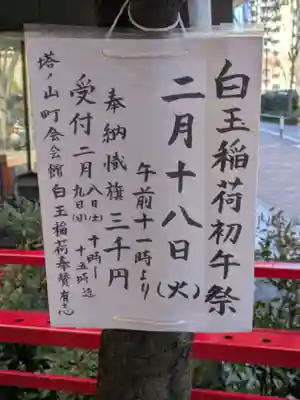 白玉稲荷初午祭
二月十八日(火)
午前十一時より
奉納幟旗 三千円
受付 二月 八日(土) 九日(日) 十時〜十五時迄
塔ノ山町会会館 白玉稲荷奉賛有志